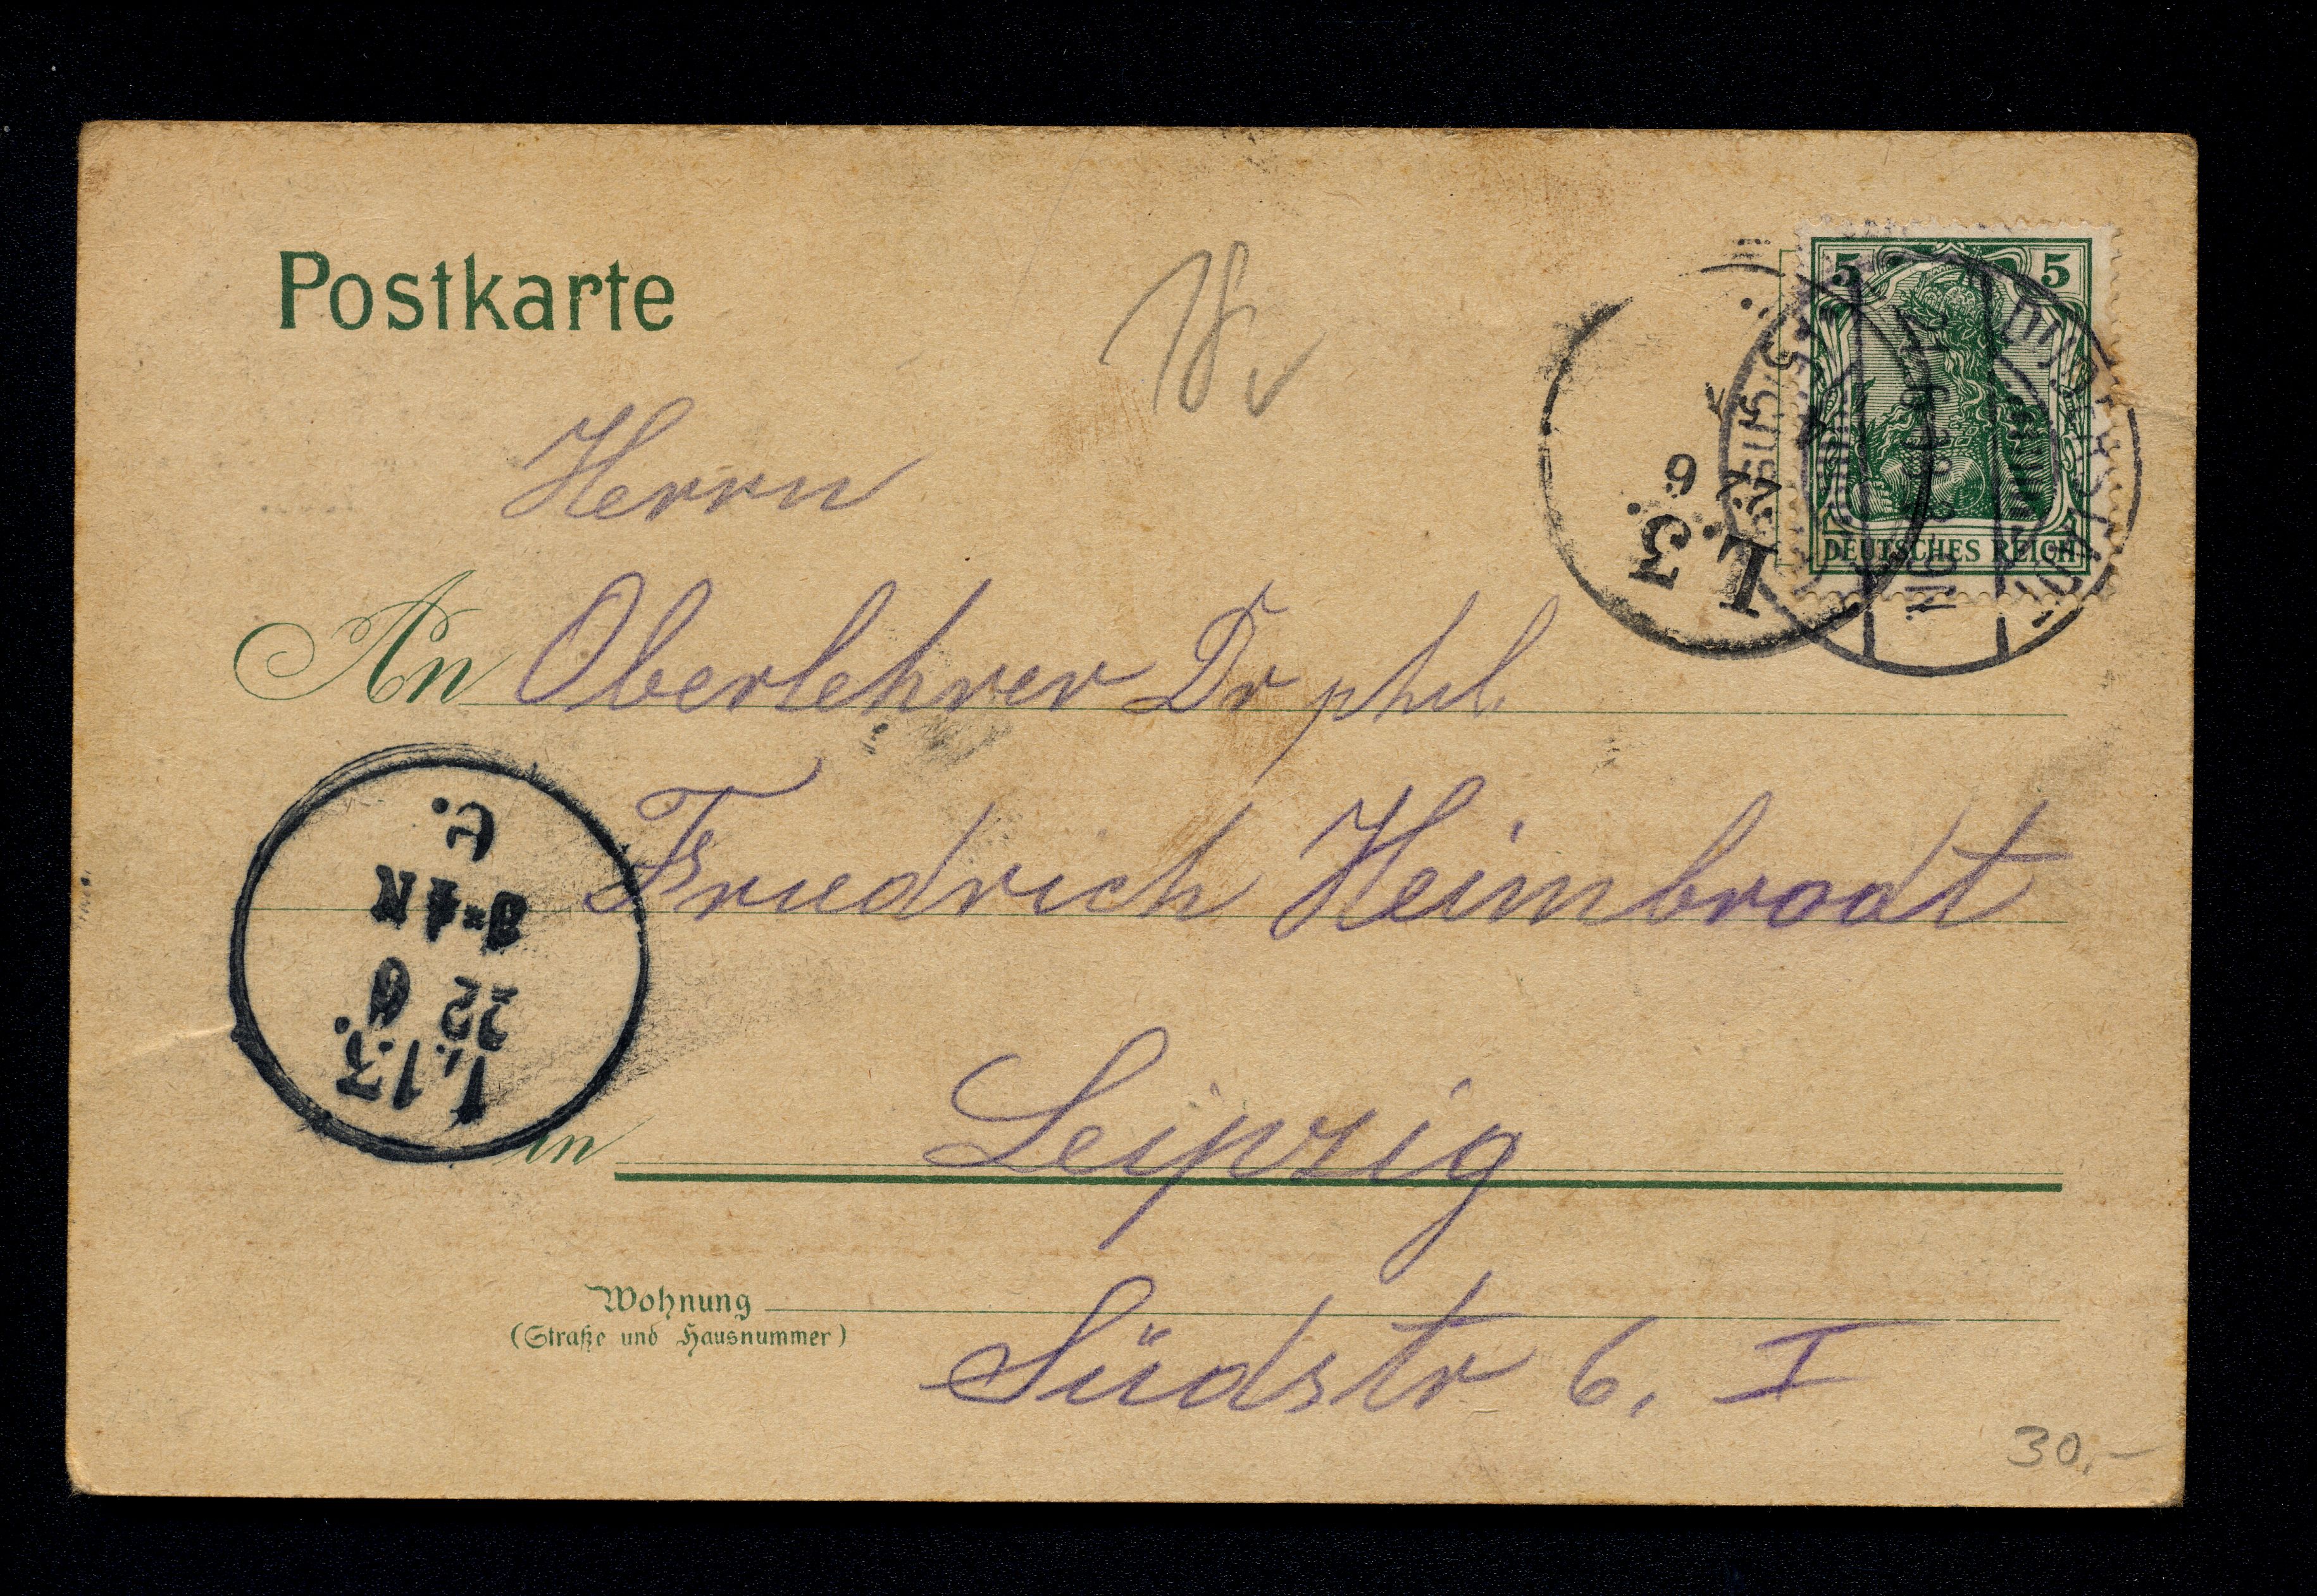 Postkarte
5 5
DEUTSCHES REICH
L. 3.
Herrn
An Oberlehrer Dr phil.
Friedrich Heimbrodt
L. 13.
22 6
3-4 N
C.
in Leipzig
Wohnung
(Straße und Hausnummer)
Südstr 6. I
30,-